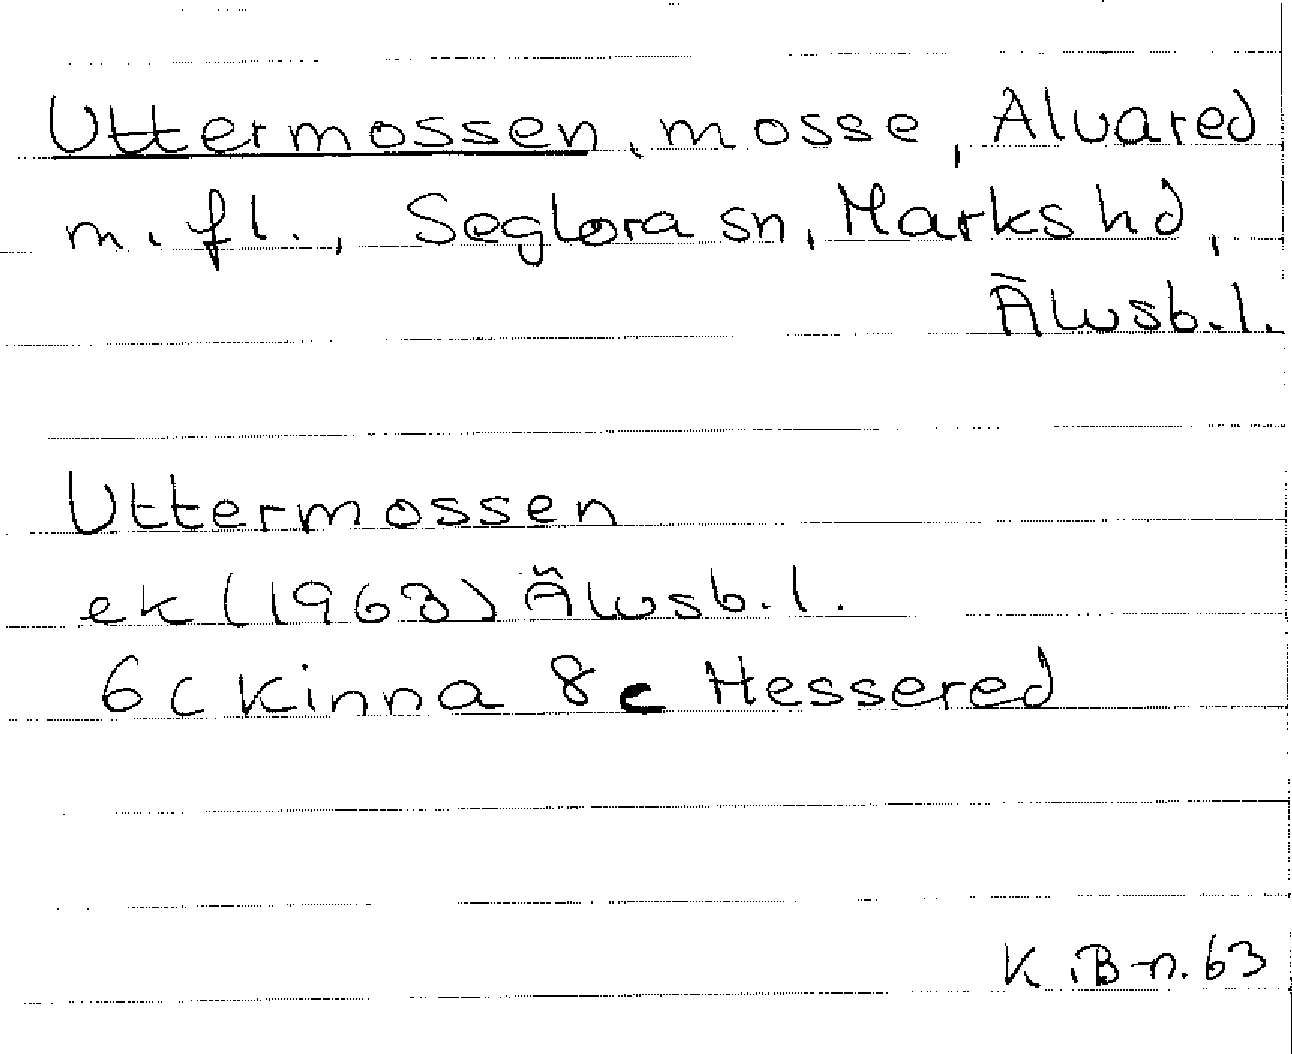 Uttermossen, mosse, Alvared
m. fl., Seglora sn, Marks hd,
Älvsb. l.
Uttermossen
ek (1963) Älvsb. l.
6c Kinna 8c Hessered
K. B-n. 63